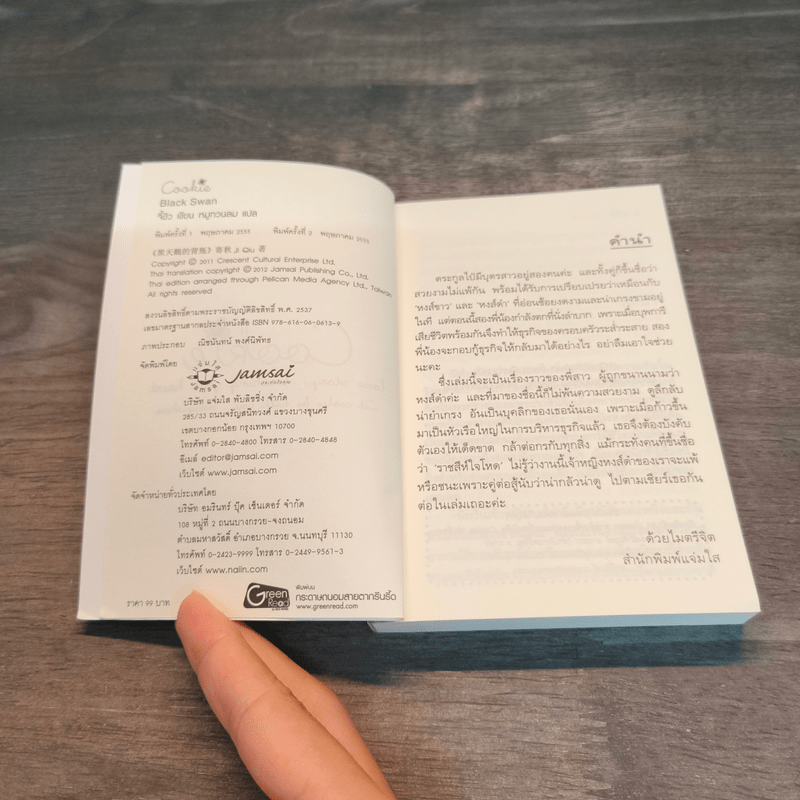 Cookie
Black Swan
จี้ชิว เขียน หมูทวนลม แปล
พิมพ์ครั้งที่ 1 พฤษภาคม 2555 พิมพ์ครั้งที่ 2 พฤษภาคม 2555
《黑天鵝的背叛》寄秋 Ji Qiu 著
Copyright © 2011 Crescent Cultural Enterprise Ltd.
Thai translation copyright © 2012 Jamsai Publishing Co., Ltd.
Thai edition arranged through Pelican Media Agency Ltd., Taiwan
All rights reserved
สงวนลิขสิทธิ์ตามพระราชบัญญัติลิขสิทธิ์ พ.ศ. 2537
เลขมาตรฐานสากลประจำหนังสือ ISBN 978-616-06-0613-9
ภาพประกอบ ณิชนันทน์ พงศ์นิพัทธ
จัดพิมพ์โดย
แจ่มใส
JAMSAI
Jamsai
บริษัท แจ่มใส พับลิชชิ่ง จำกัด
285/33 ถนนจรัญสนิทวงศ์ แขวงบางขุนศรี
เขตบางกอกน้อย กรุงเทพฯ 10700
โทรศัพท์ 0-2840-4800 โทรสาร 0-2840-4848
อีเมล์ editor@jamsai.com
เว็บไซต์ www.jamsai.com
จัดจำหน่ายทั่วประเทศโดย
บริษัท อมรินทร์ บุ๊ค เซ็นเตอร์ จำกัด
108 หมู่ที่ 2 ถนนบางกรวย-จงถนอม
ตำบลมหาสวัสดิ์ อำเภอบางกรวย จ.นนทบุรี 11130
โทรศัพท์ 0-2423-9999 โทรสาร 0-2449-9561-3
เว็บไซต์ www.naiin.com
ราคา 99 บาท
Green Read
พิมพ์บน
กระดาษถนอมสายตากรีนรี้ด
www.greenread.com
คำนำ
ตระกูลไป๋มีบุตรสาวอยู่สองคนค่ะ และทั้งคู่ก็ขึ้นชื่อว่า
สวยงามไม่แพ้กัน พร้อมได้รับการเปรียบเปรยว่าเหมือนกับ
'หงส์ขาว' และ 'หงส์ดำ' ที่อ่อนช้อยงดงามและน่าเกรงขามอยู่
ในที แต่ตอนนี้สองพี่น้องกำลังตกที่นั่งลำบาก เพราะเมื่อบุพการี
เสียชีวิตพร้อมกันจึงทำให้ธุรกิจของครอบครัวระส่ำระสาย สอง
พี่น้องจะกอบกู้ธุรกิจให้กลับมาได้อย่างไร อย่าลืมเอาใจช่วย
นะคะ
ซึ่งเล่มนี้จะเป็นเรื่องราวของพี่สาว ผู้ถูกขนานนามว่า
หงส์ดำค่ะ และที่มาของชื่อนี้ก็ไม่พ้นความสวยงาม ดูลึกลับ
น่ายำเกรง อันเป็นบุคลิกของเธอนั่นเอง เพราะเมื่อก้าวขึ้น
มาเป็นหัวเรือใหญ่ในการบริหารธุรกิจแล้ว เธอจึงต้องบังคับ
ตัวเองให้เด็ดขาด กล้าต่อกรกับทุกสิ่ง แม้กระทั่งคนที่ขึ้นชื่อ
ว่า 'ราชสีห์ใจโหด' ไม่รู้ว่างานนี้เจ้าหญิงหงส์ดำของเราจะแพ้
หรือชนะเพราะคู่ต่อสู้นับว่าน่ากลัวน่าดู ไปตามเชียร์เธอกัน
ต่อในเล่มเถอะค่ะ
ด้วยไมตรีจิต
สำนักพิมพ์แจ่มใส